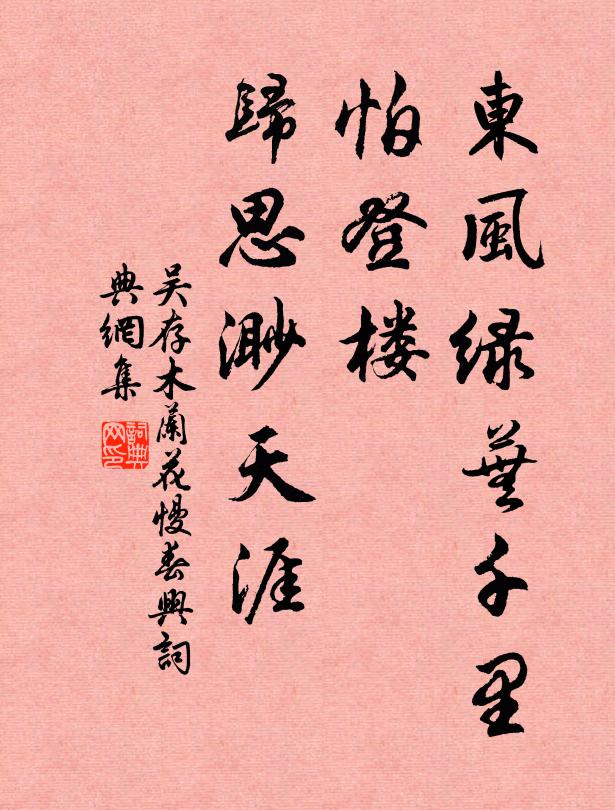 東風綠蕪千里
怕登楼
歸思渺天涯
吴存木蘭花慢春興詞
典網集
詞典网印